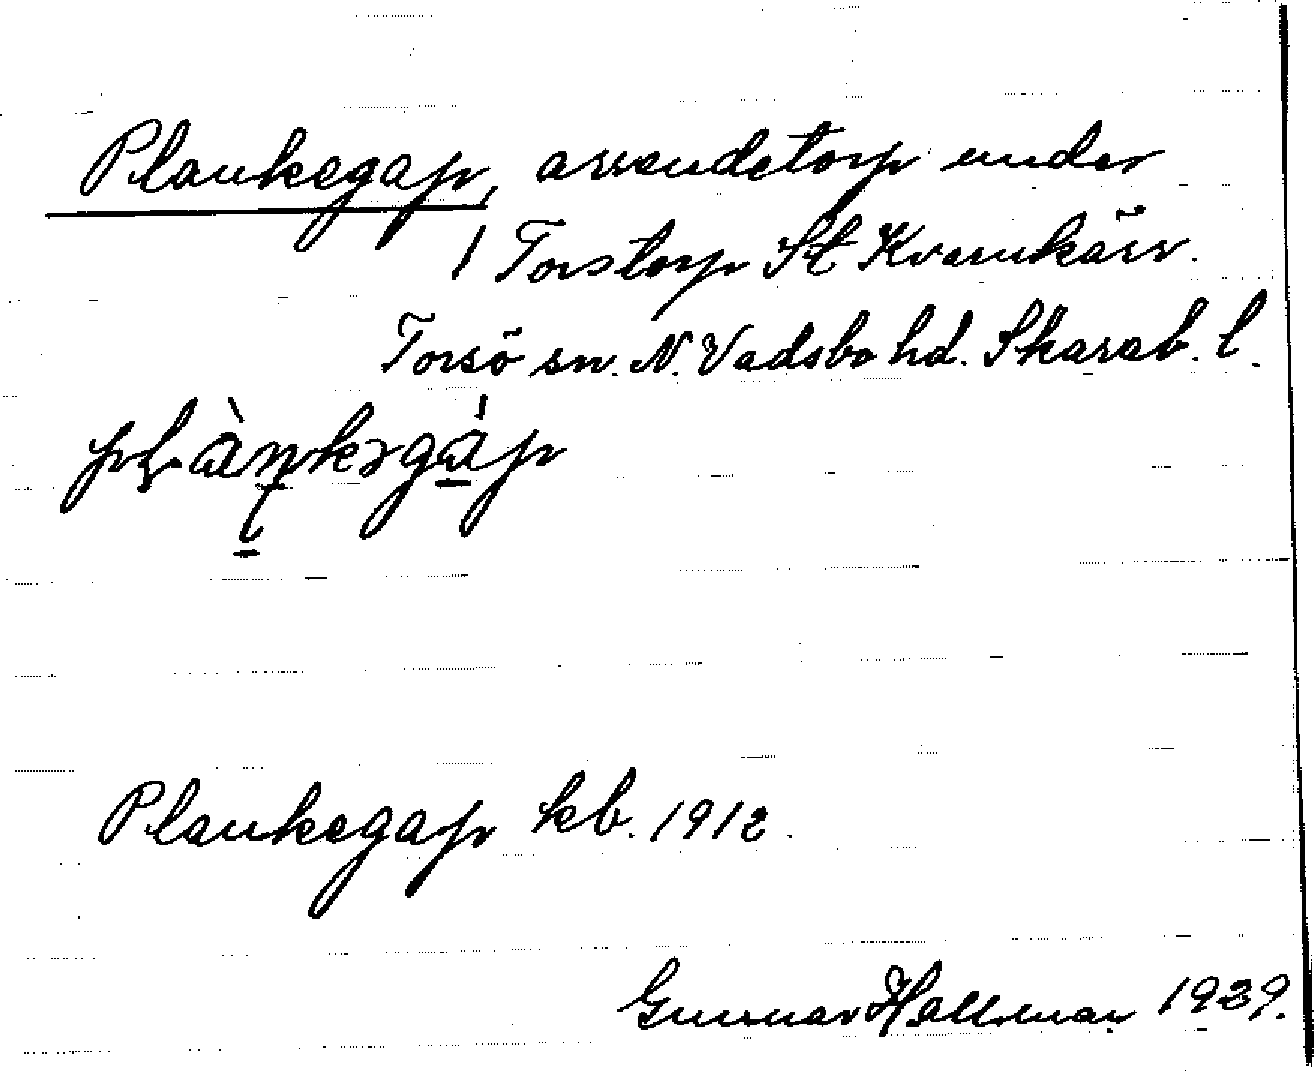 Plankegap, arrendetorp under
1 Torstorp St Kvarnkärr.
Torsö sn. N. Vadsbo hd. Skarab. l.
Plankegap kb. 1912.
Gunnar Hallman 1929.